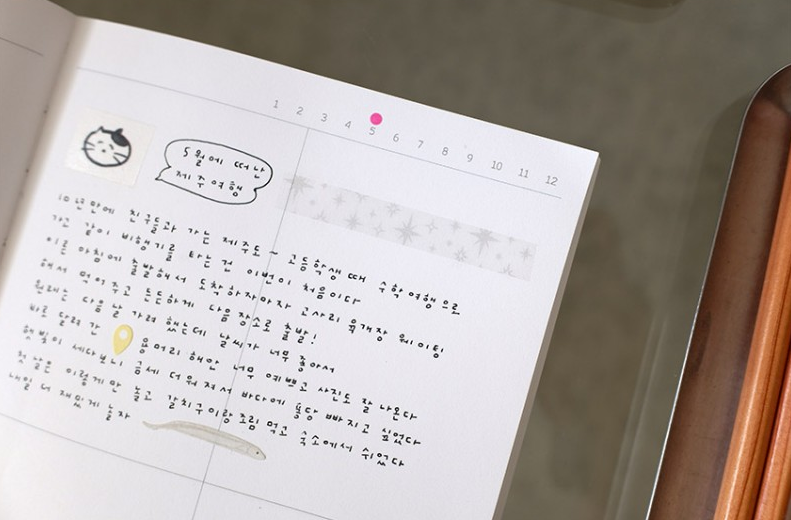 1 2 3 4 5 6 7 8 9 10 11 12
5월에 떠난
제주여행
10년만에 친구들과 가는 제주도 ~ 고등학생 때 수학여행으로
가고 같이 비행기를 타는 건 이번이 처음이다
이른 아침에 출발해서 도착하자마자 고사리 육개장 웨이팅
해서 먹어주고 든든하게 다음 장소로 출발!
원래는 다음날 가려 했는데 날씨가 너무 좋아서
바로 달려간 용머리 해안 너무 예쁘고 사진도 잘 나온다
햇빛이 세다보니 금세 더워져서 바다에 퐁당 빠지고 싶었다
첫날은 이렇게만 놀고 갈치구이랑 조림 먹고 숙소에서 쉬었다
내일 더 재밌게 놀자